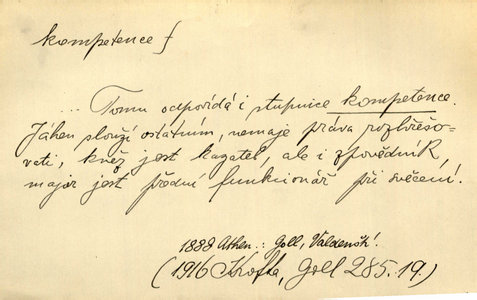 kompetence f
... Tomu odpovídá i stupnice kompetence.
Jáhen slouží ostatním, nemaje práva rozhřešo-
vati, kněz jest kazatel, ale i zpovědník,
major jest přední funkcionář při svěcení.
1888 Athen.: Goll, Valdenští.
(1916 Krofta, Goll 285.19.)